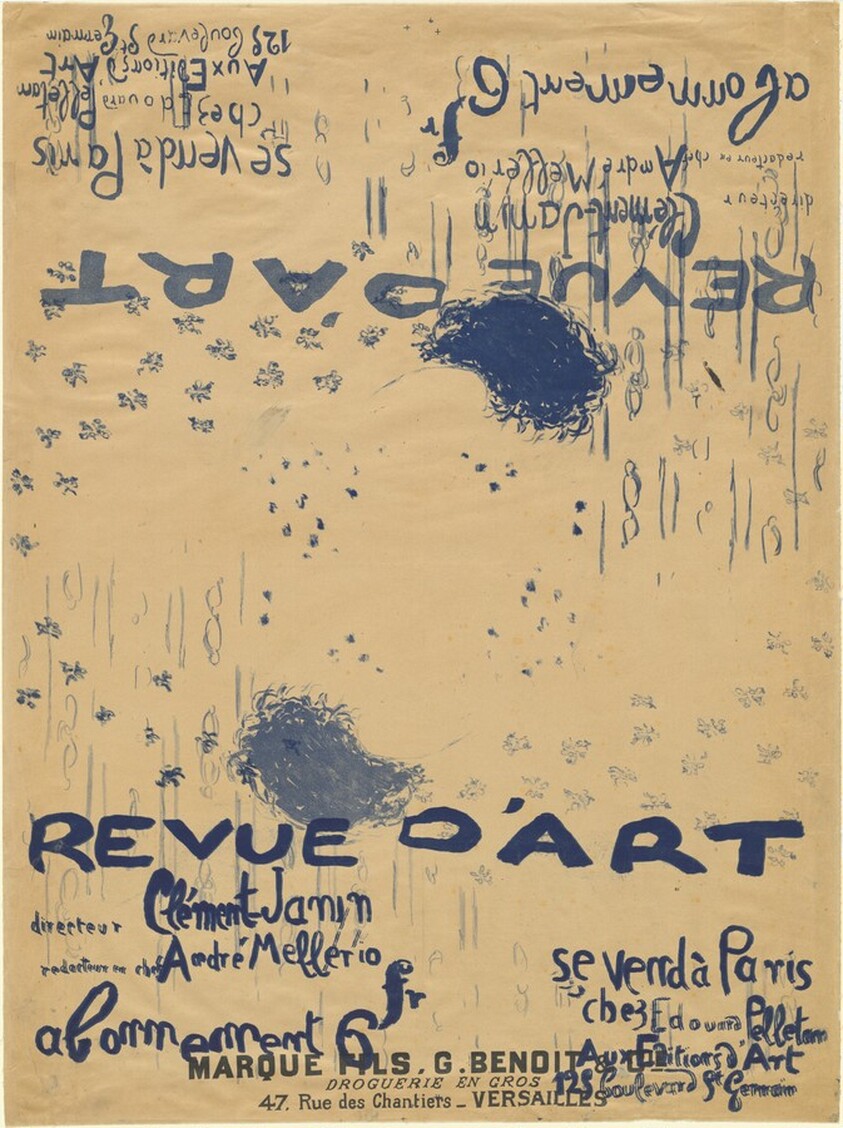 REVUE D'ART
directeur Clément-Janin
redacteur en chef André Mellerio
abonnement 6 fr
se vend à Paris
chez Edouard Pelletan
Aux Editions d'Art
125 boulevard St Germain
REVUE D'ART
directeur Clément-Janin
redacteur en chef André Mellério
abonnement 6 fr
se vend à Paris
chez Edouard Pelletan
Aux Editions d'Art
125 boulevard St Germain
MARQUE FILS. G. BENOIT
DROGUERIE EN GROS
47, Rue des Chantiers _ VERSAILLES